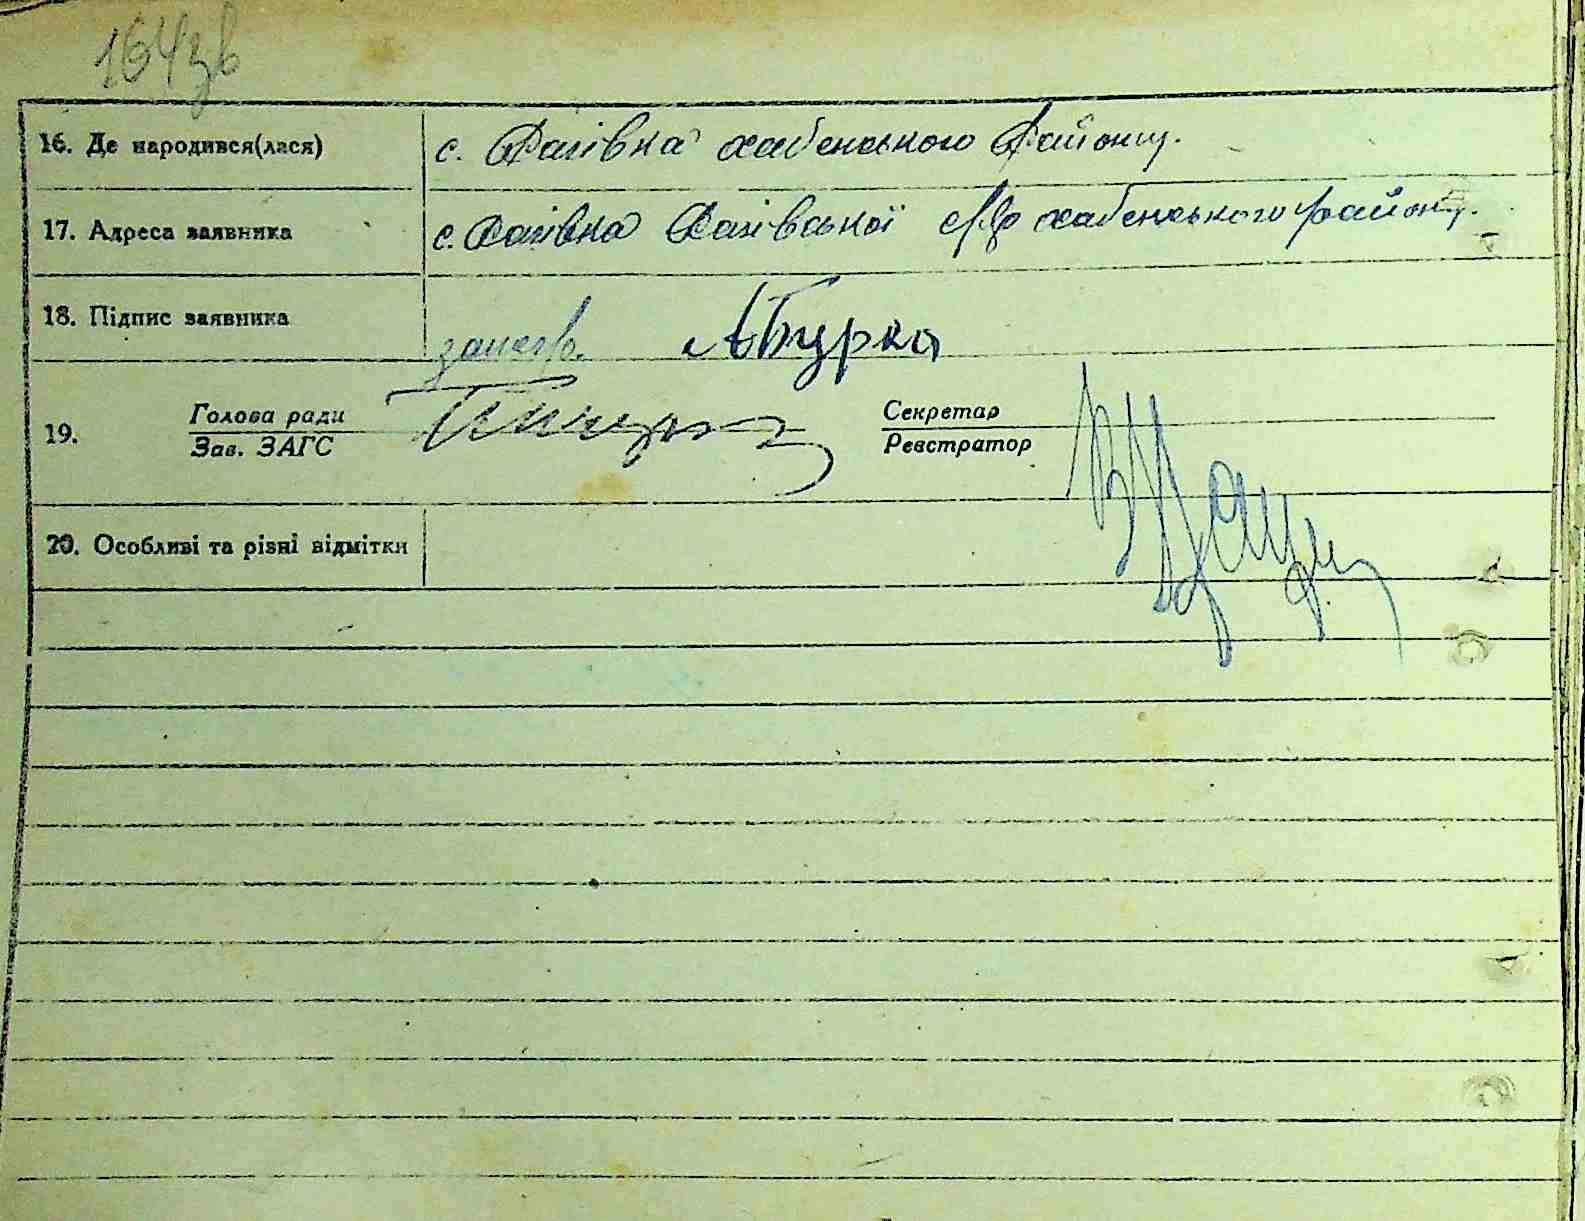 164зв
16. Де народився(лася) с. Рагівка хабенського Району.
17. Адреса заявника с. Рагівка Рагівської с/р хабенського району.
18. Підпис заявника АБурка
19. Голова ради Секретар
Зав. ЗАГС Реєстратор
20. Особливі та різні відмітки